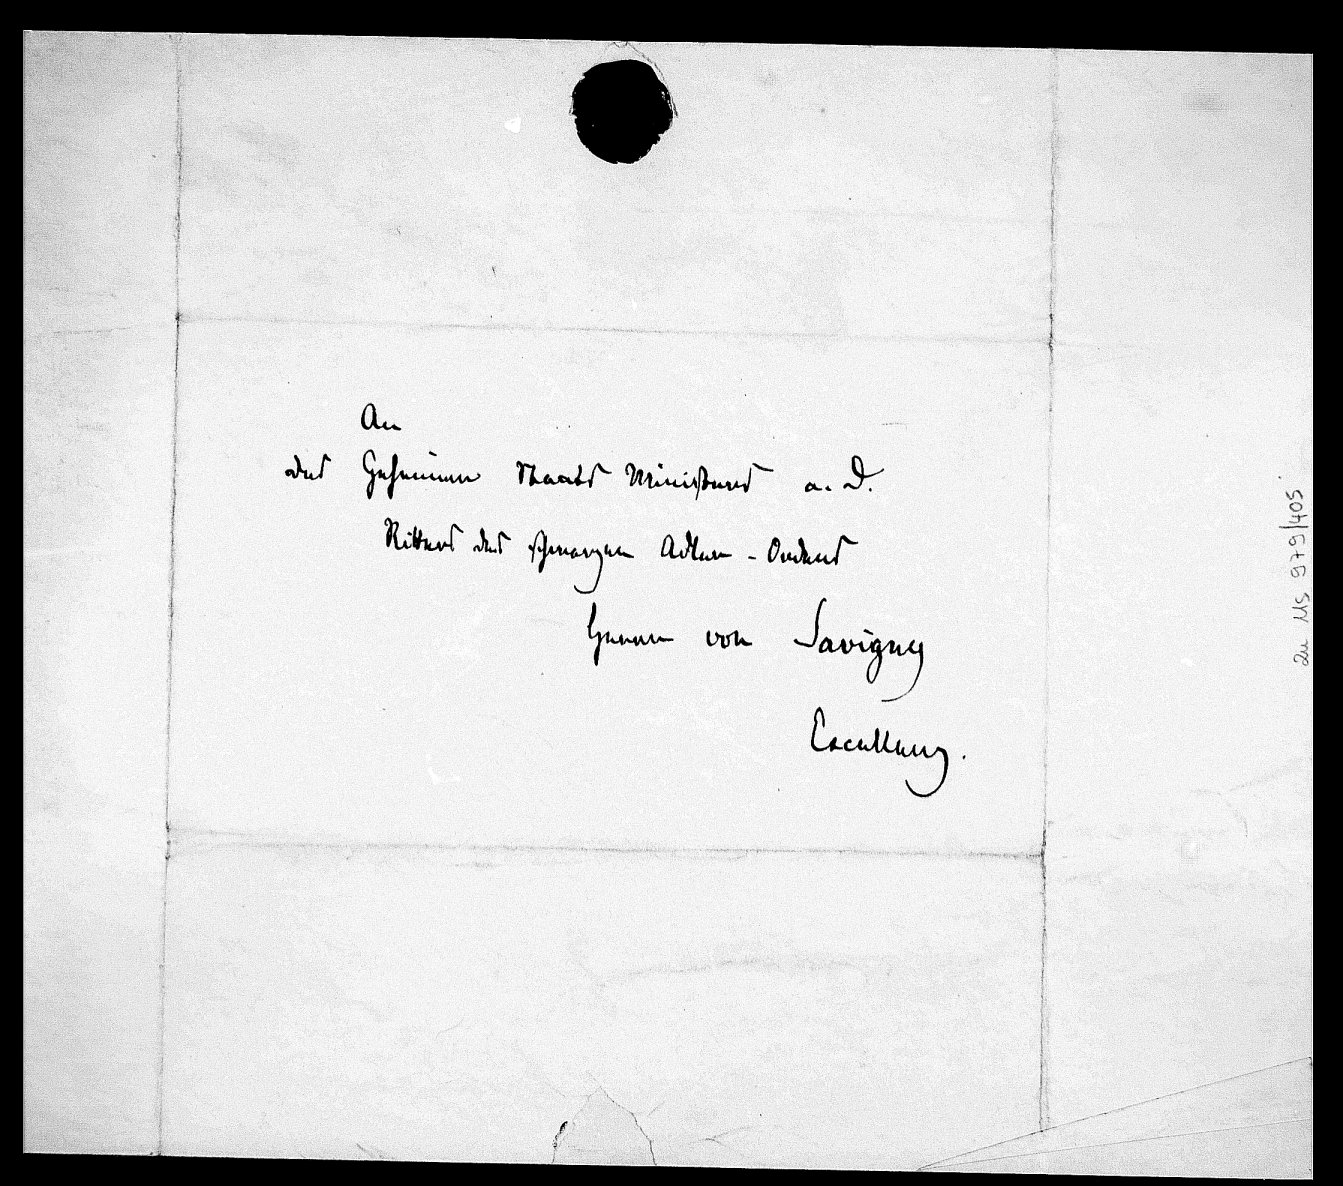 An
des Geheimen Staats Ministers a. D.
Ritters des schwarzen Adler-Ordens
Herrn von Savigny
Excellenz.
zu Ms 979/405